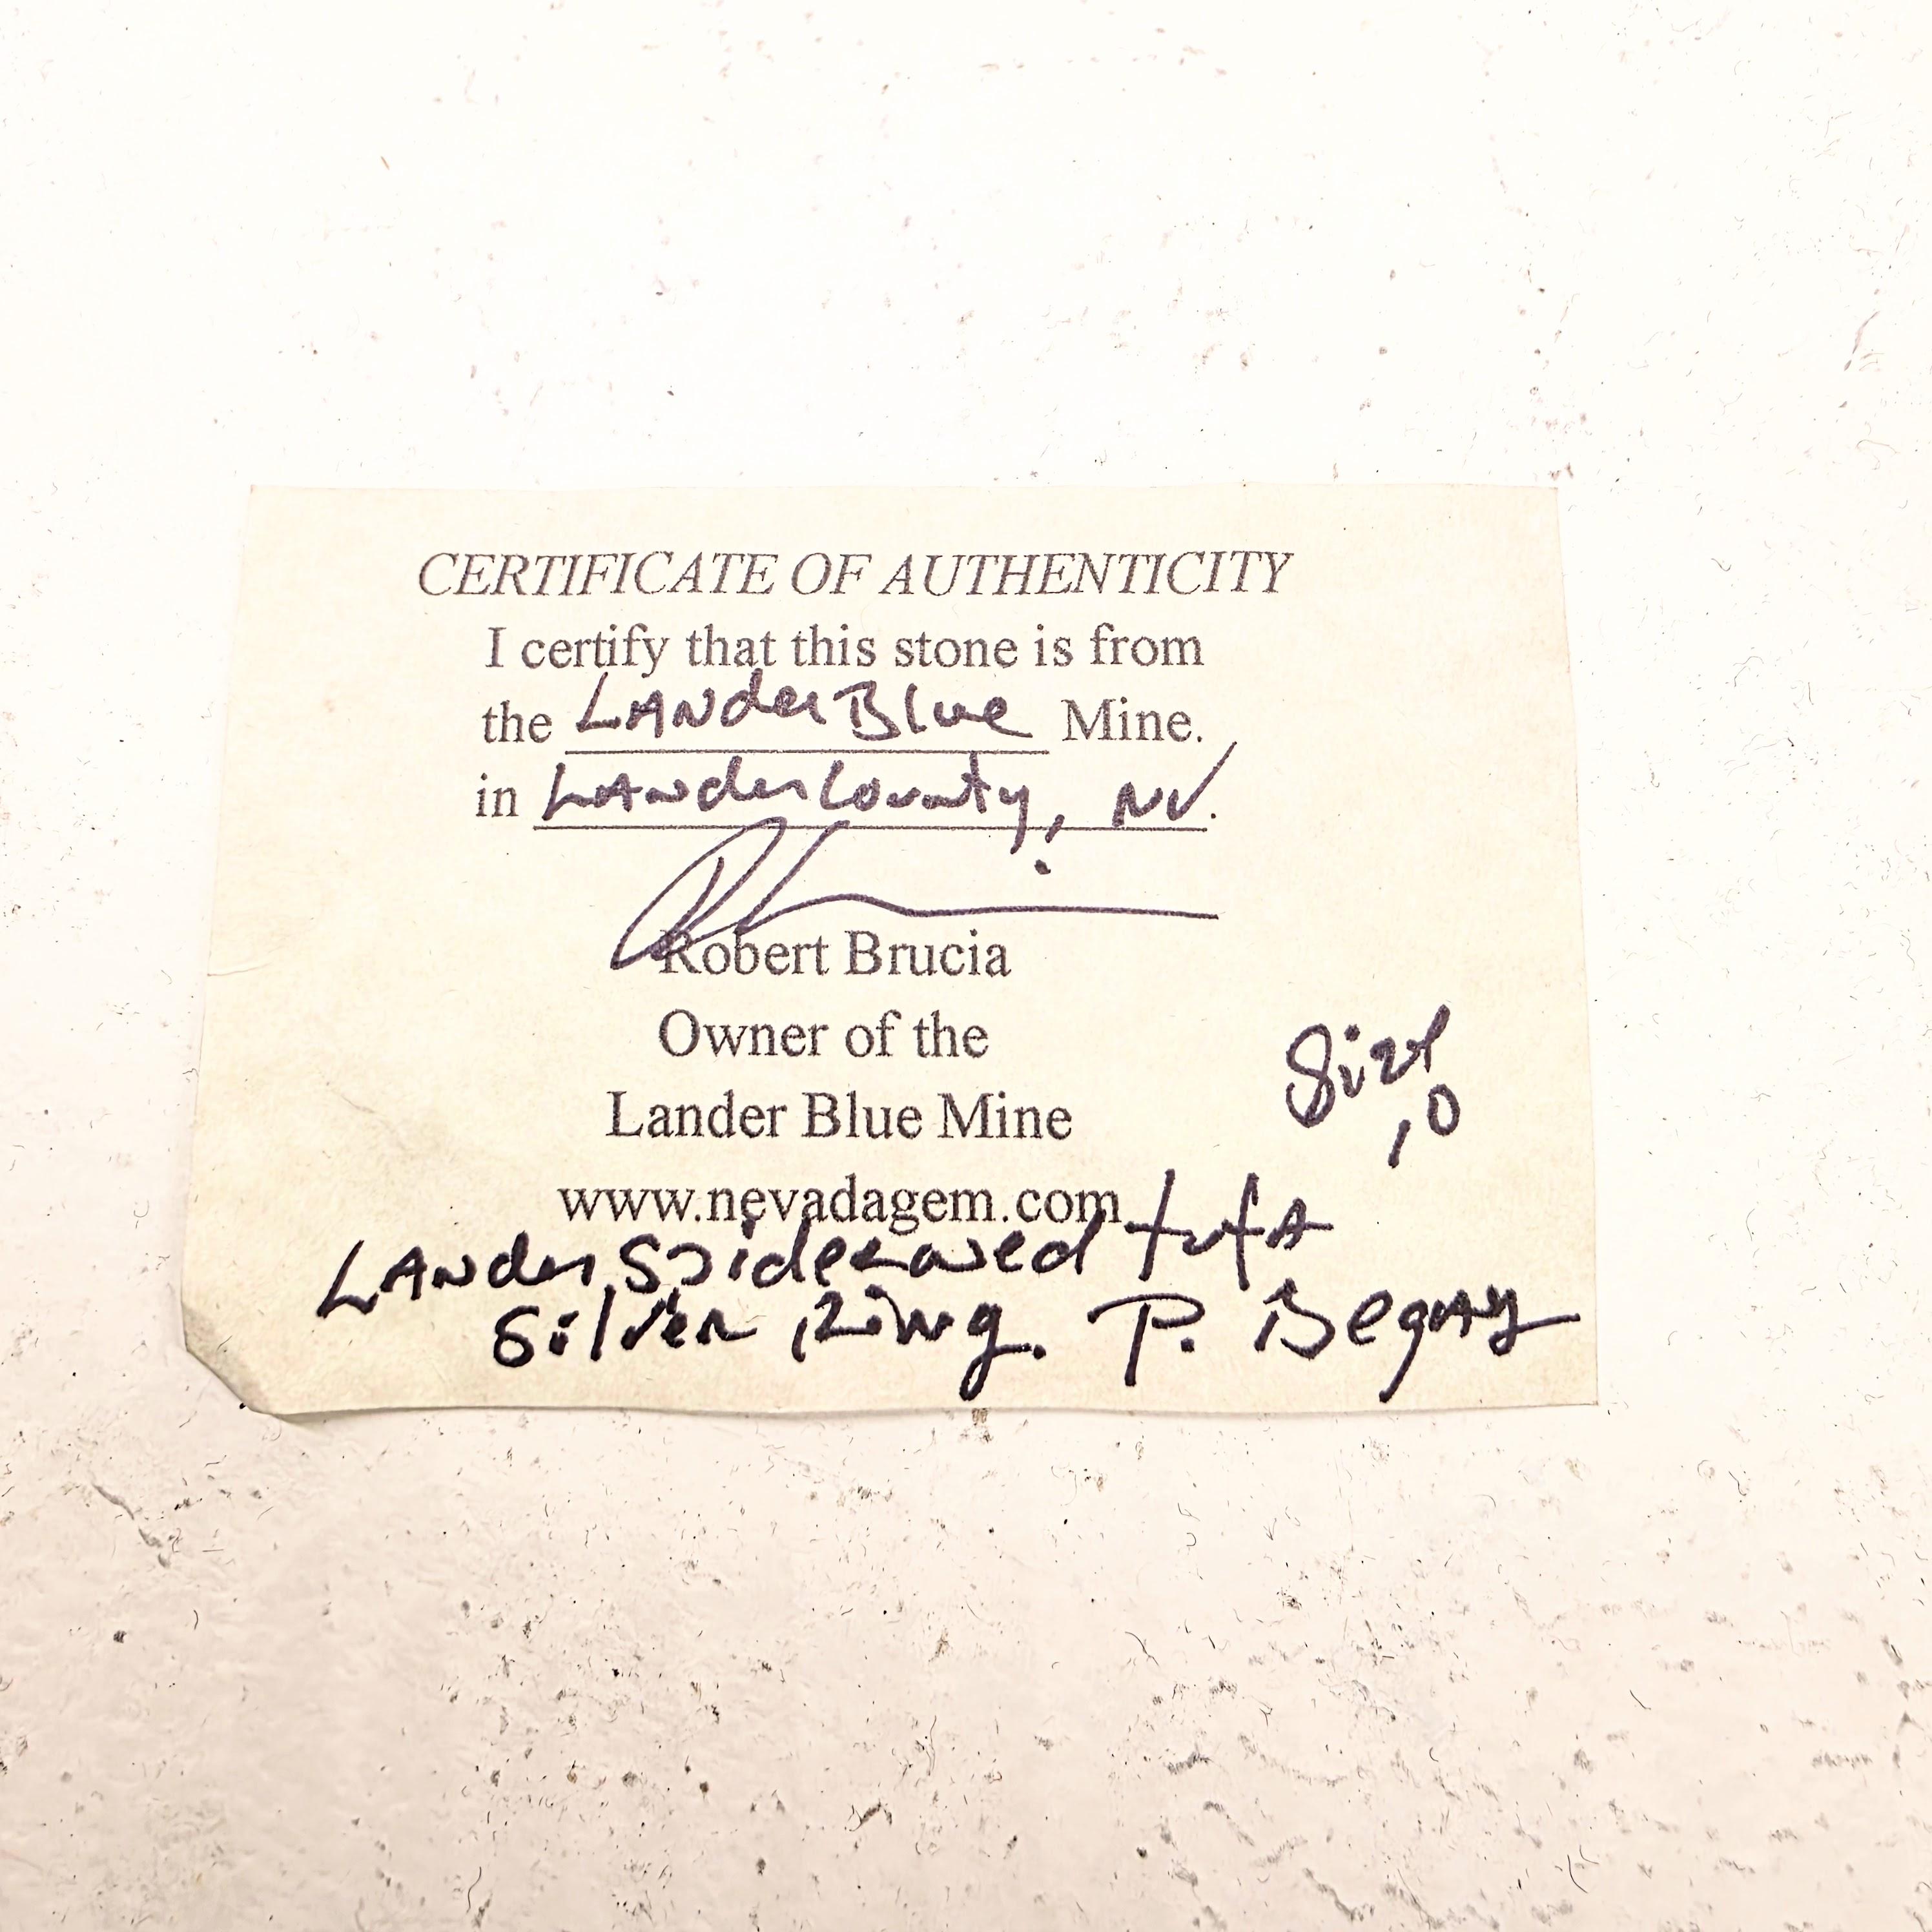 CERTIFICATE OF AUTHENTICITY
I certify that this stone is from
the Lander Blue Mine.
in Lander County, NV.
Robert Brucia
Owner of the
Lander Blue Mine
Size
10
www.nevadagem.com
Lander Spiderwed tufA
Silver Ring. P. Begay